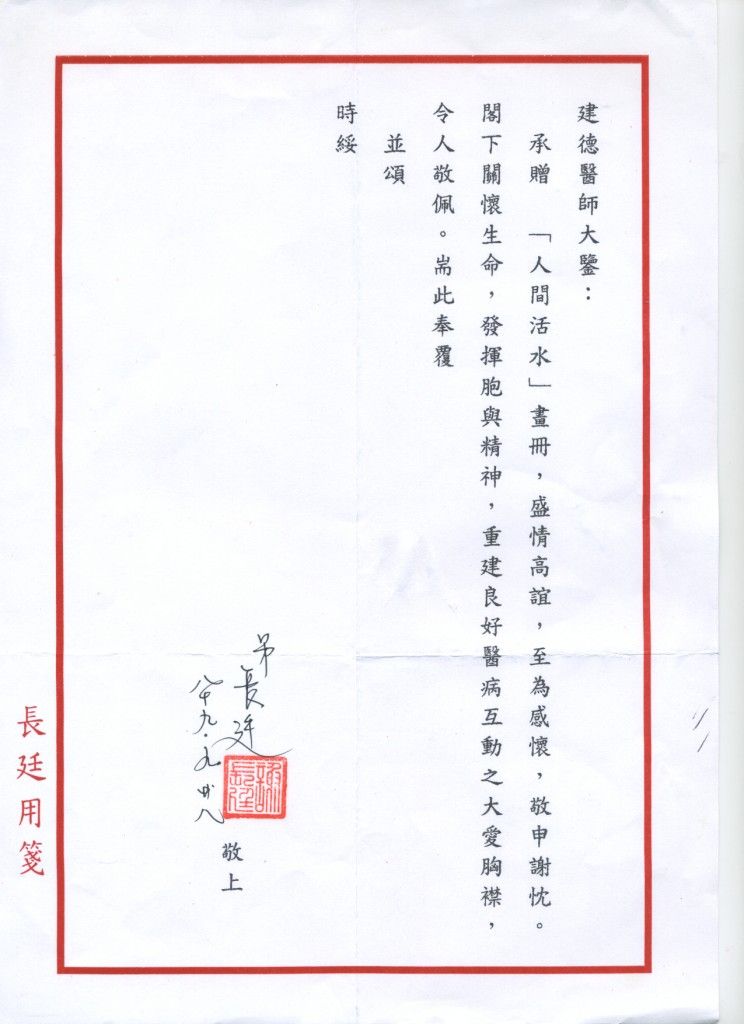 建德醫師大鑒：
承贈「人間活水」畫冊，盛情高誼，至為感懷，敬申謝忱。
閣下關懷生命，發揮胞與精神，重建良好醫病互動之大愛胸襟，
令人敬佩。耑此奉覆
並頌
時綏
弟長廷
敬上
八十九.九.廿八
長廷用箋